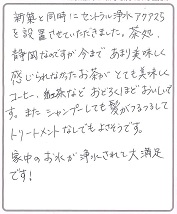 新築と同時にセントラル浄水アクア25
を設置させていただきました。茶処、
静岡なのですが今まであまり美味しく
感じられなかったお茶がとても美味しく
コーヒー、紅茶など おどろくほどおいしいで
す。また シャンプーしても髪がつるつるして
トリートメントなしでもよさそうです。
家中のお水が浄水されて大満足
です!